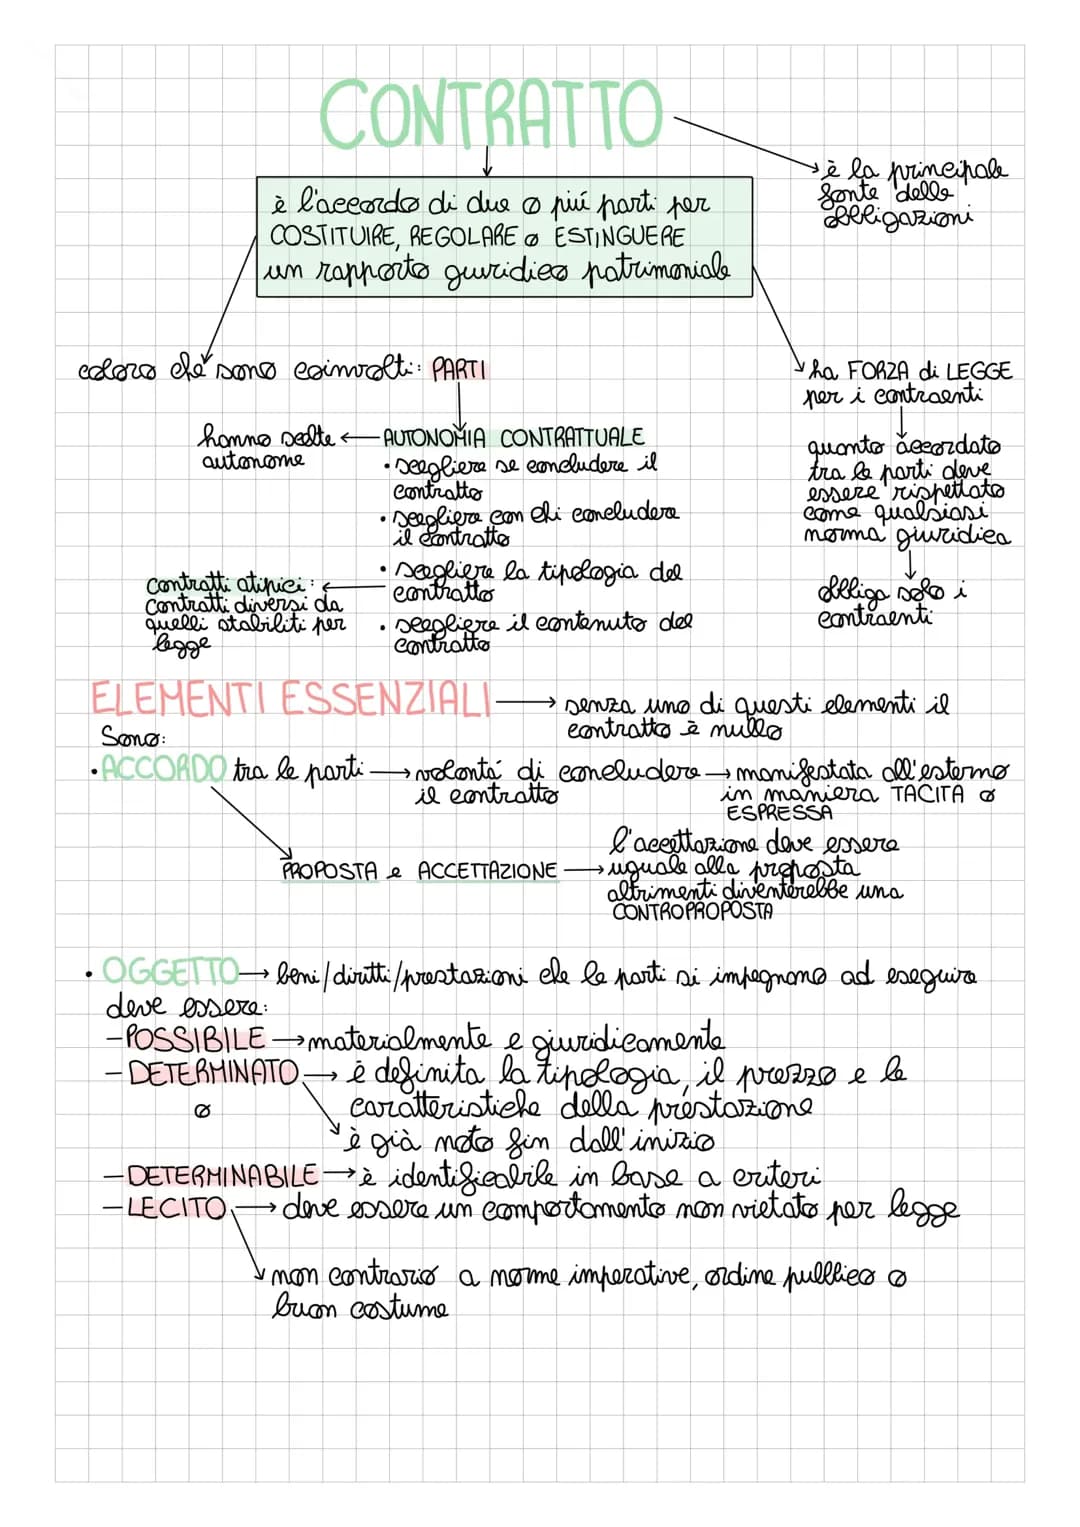 CONTRATTO
è la principale
fonte delle
obbligazioni
è l'accordo di due o piú parti per
COSTITUIRE, REGOLARE o ESTINGUERE
un rapporto giuridico patrimoniale
coloro che sono coinvolti: PARTI
ha FORZA di LEGGE
per i contraenti
hanno scelte
autonome
AUTONOMIA CONTRATTUALE
• scegliere se concludere il
contratto
• scegliere con chi concludere
il contratto
• scegliere la tipologia del
contratto
• scegliere il contenuto del
contratto
contratti atipici:
contratti diversi da
quelli stabiliti per
legge
quanto accordato
tra le parti deve
essere rispettato
come qualsiasi
norma giuridica
obbliga solo i
contraenti
ELEMENTI ESSENZIALI → senza uno di questi elementi il
contratto è nullo
Sono:
• ACCORDO tra le parti → volontá di concludere → manifestata all'esterno
il contratto
in maniera TACITA o
ESPRESSA
PROPOSTA e ACCETTAZIONE →
l'accettazione deve essere
uguale alla proposta
altrimenti diventerebbe una
CONTROPROPOSTA
• OGGETTO → beni/diritti/prestazioni che le parti si impegnano ad eseguire
deve essere:
- POSSIBILE → materialmente e giuridicamente
- DETERMINATO → è definita la tipologia, il prezzo e le
o
caratteristiche della prestazione
è già noto fin dall'inizio
- DETERMINABILE → è identificabile in base a criteri
- LECITO → deve essere un comportamento non vietato per legge
non contrario a norme imperative, ordine pubblico o
buon costume